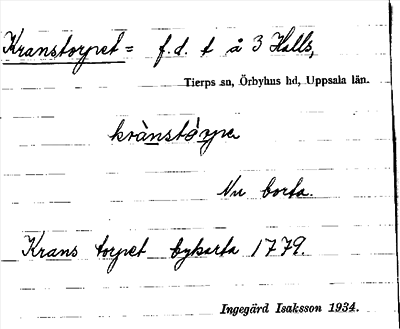 Kranstorpet = f.d. t å 3 Halls,
Tierps sn, Örbyhus hd, Uppsala län.
krànstórpe
Nu borta.
Krans torpet bykarta 1779.
Ingegärd Isaksson 1934.